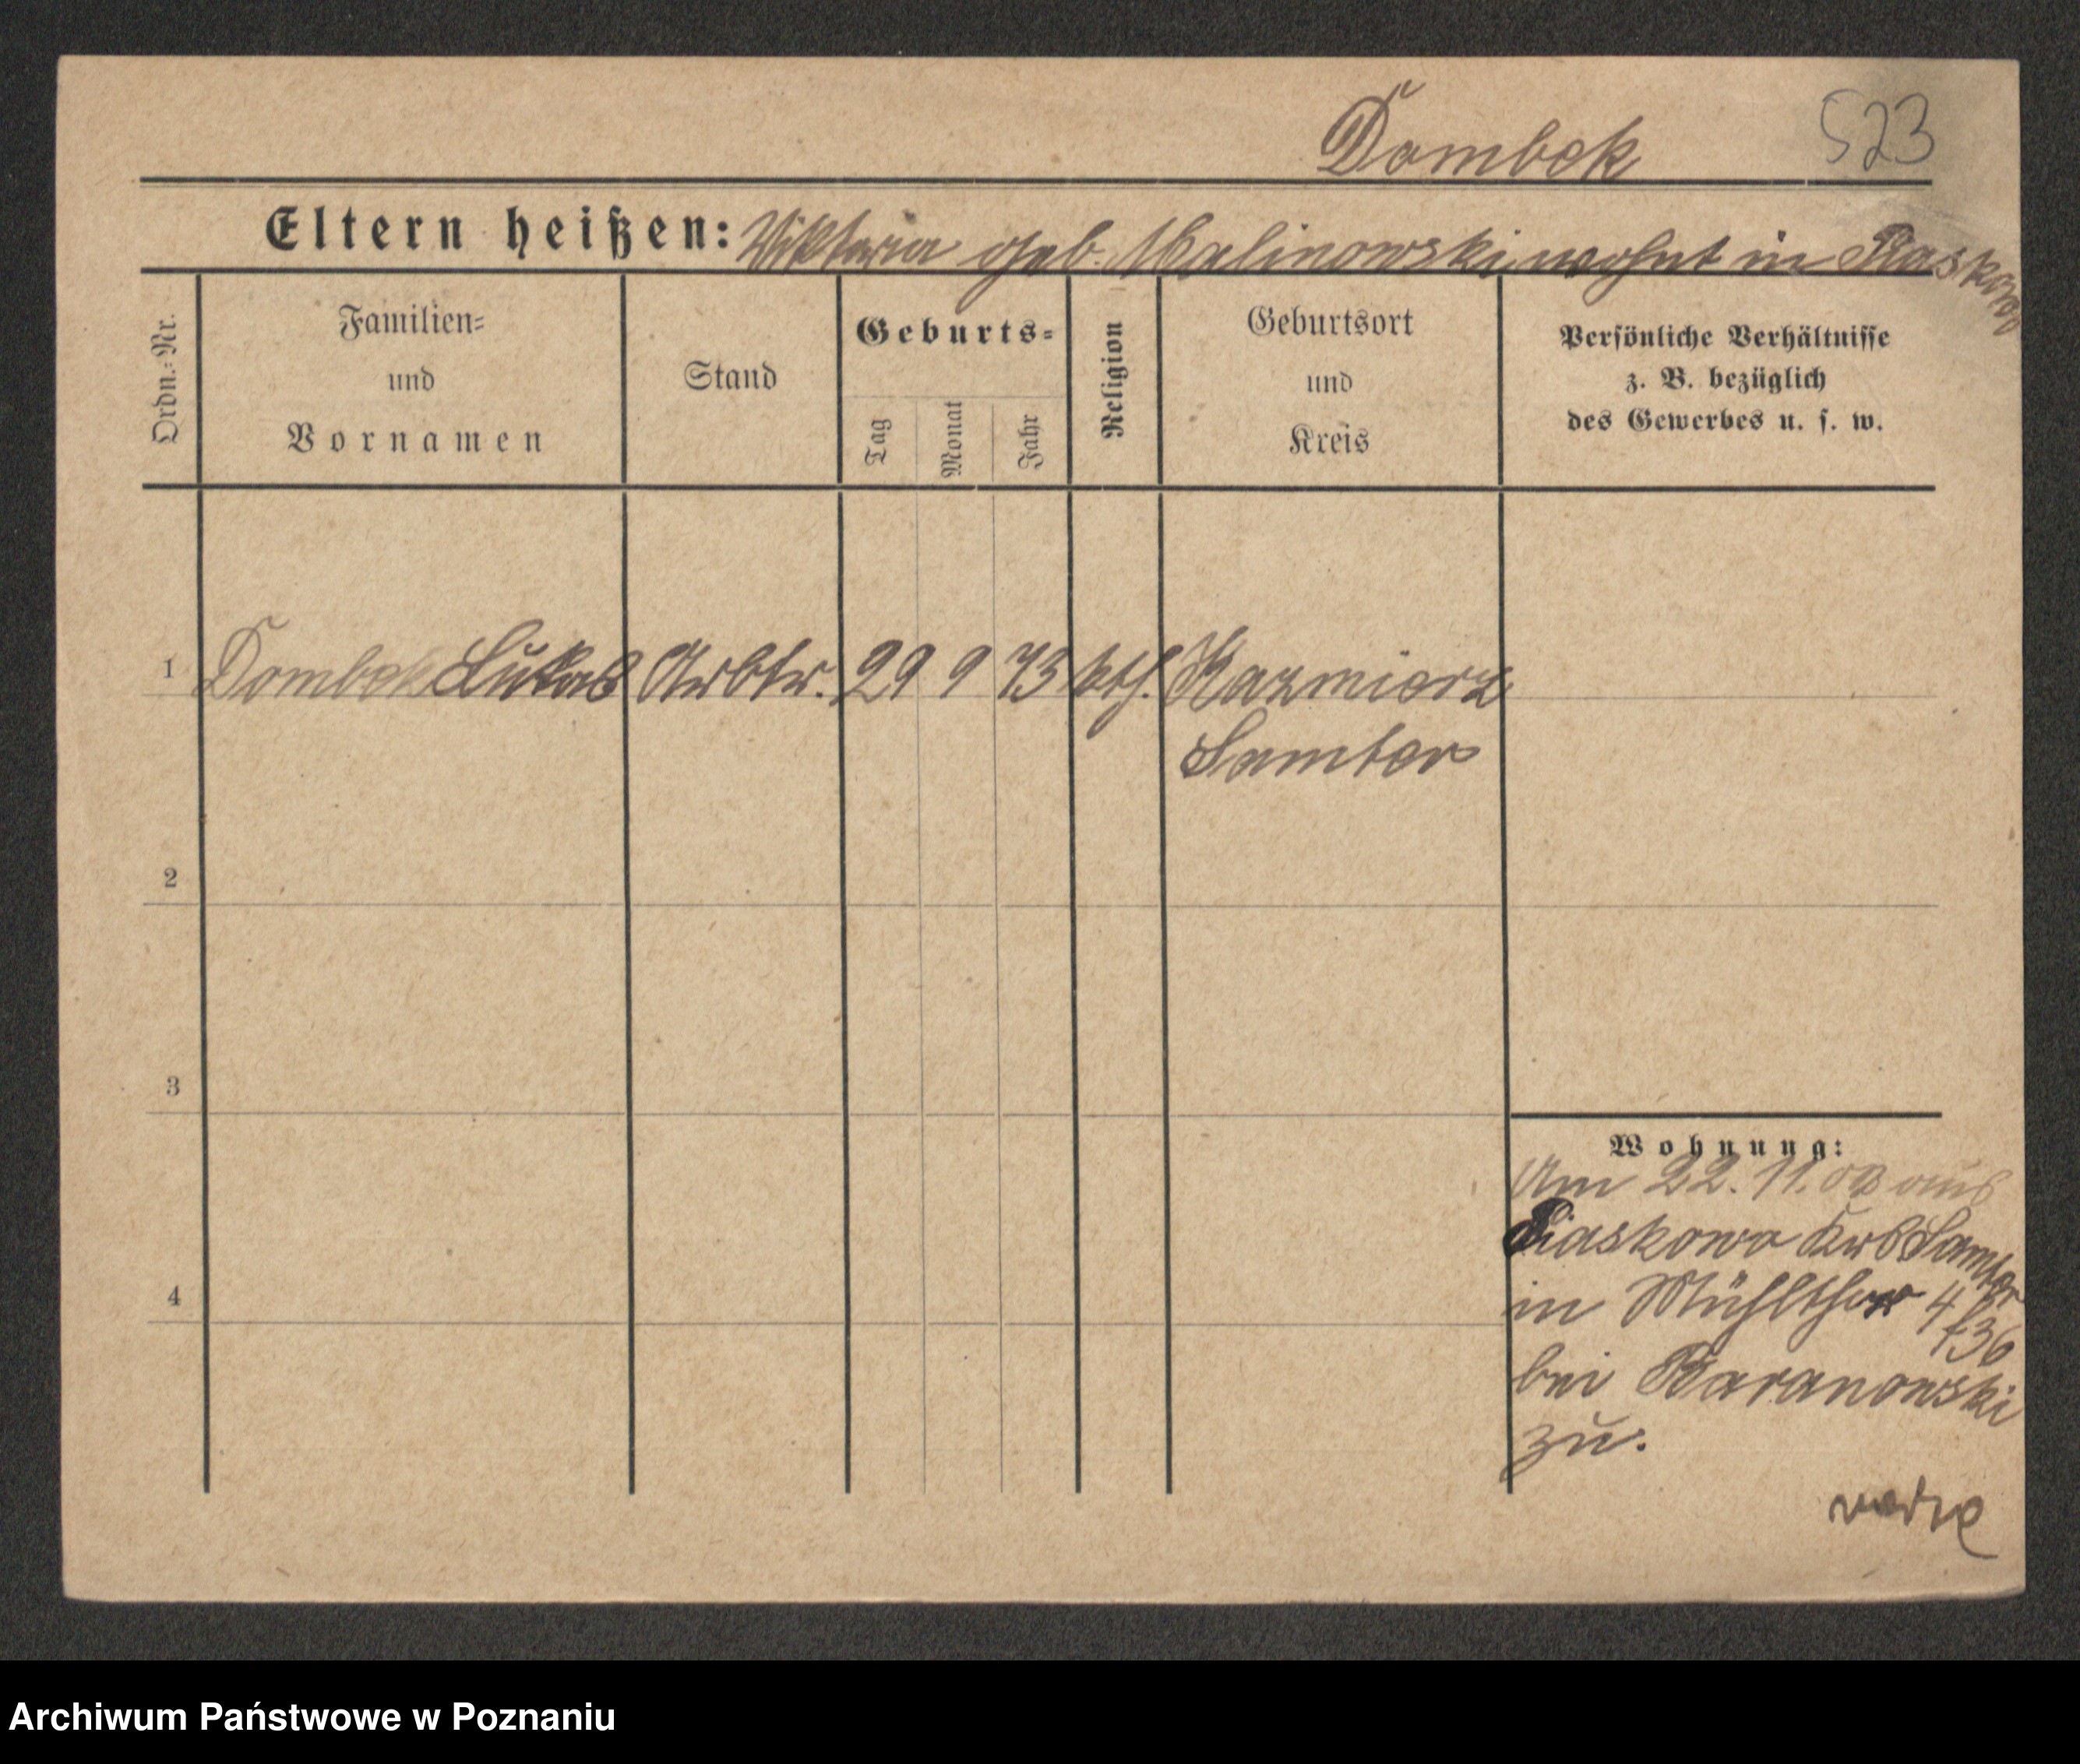 Dombek
523
Eltern heißen: Viktoria geb. Malinowski wohnt in Piaskowo
Ordn.-Nr.
Familien-
und
Vornamen
Stand
Geburts-
Tag
Monat
Jahr
Religion
Geburtsort
und
Kreis
Persönliche Verhältnisse
z. B. bezüglich
des Gewerbes u. s. w.
1 Dombek Lukas Arbtr. 29 9 73 kth. Kazmierz
Samter
2
3
4
Wohnung:
Am 22. 11. 09 aus
Piaskowo Krs Samter
in Mühlthor 4
bei Baranowski
zu.
Archiwum Państwowe w Poznaniu